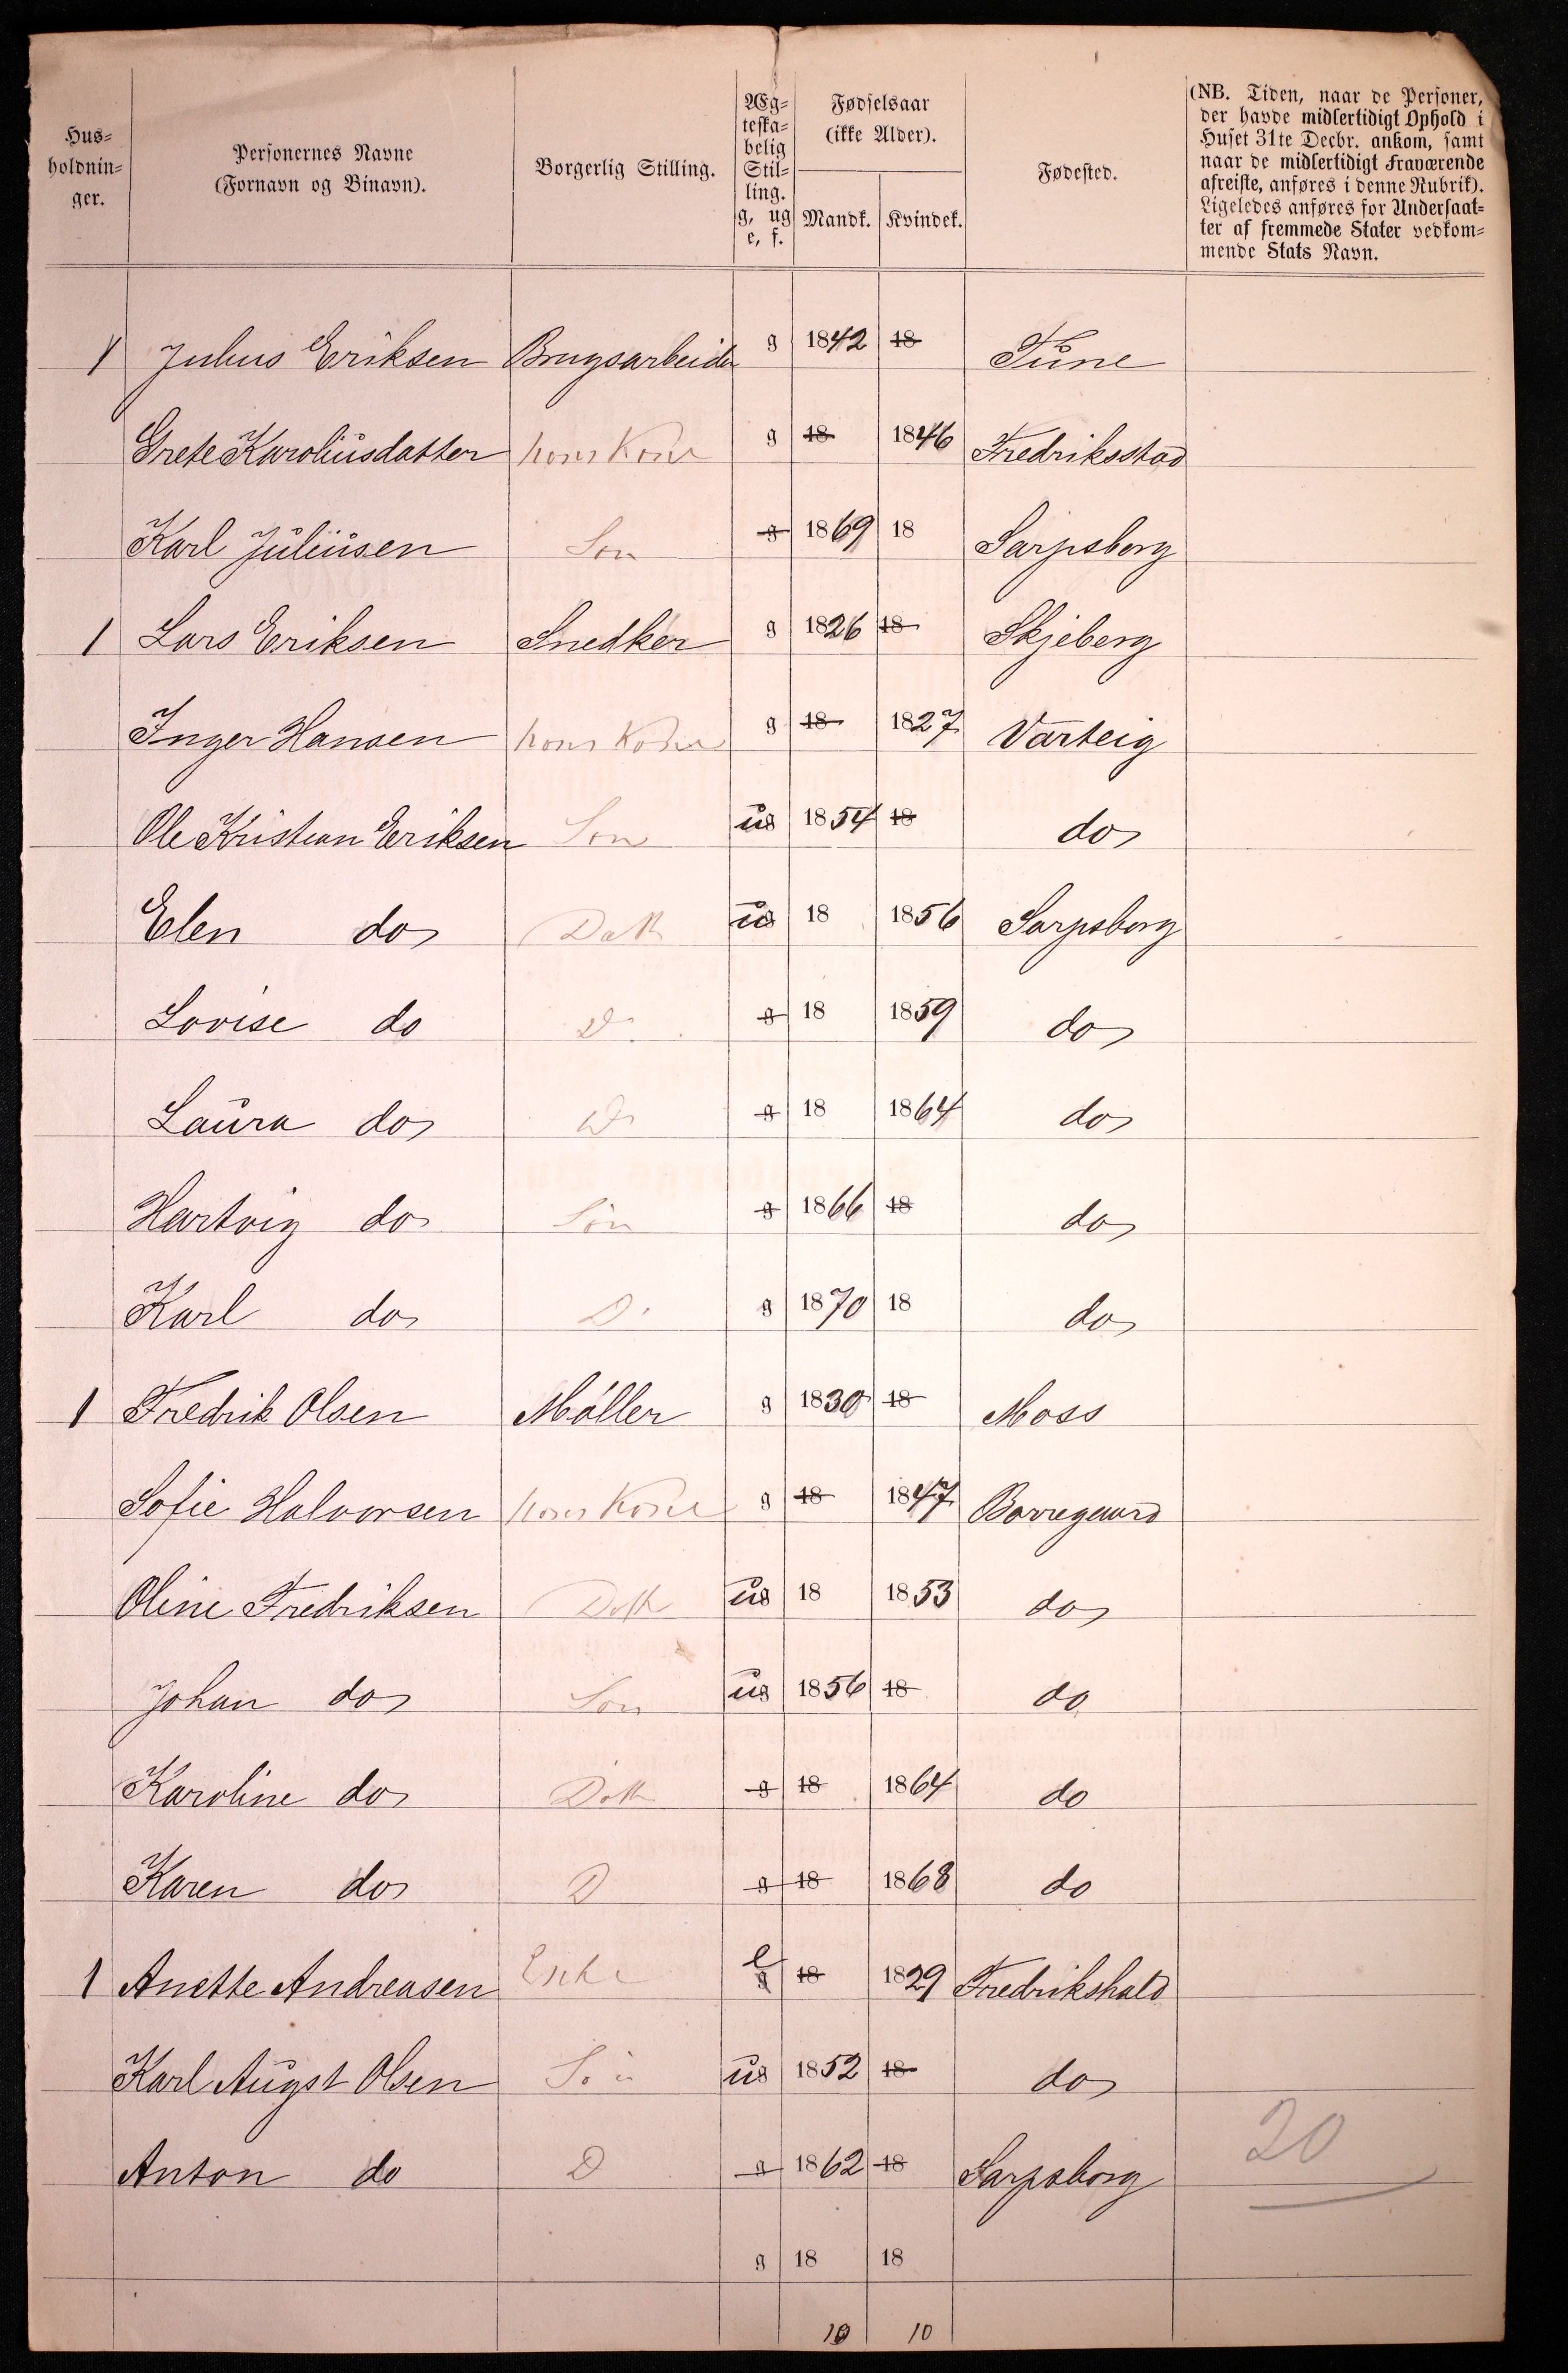 Hus=
holdnin=
ger.
Personernes Navne
(Fornavn og Binavn).
Borgerlig Stilling.
Æg=
teska=
belig
Stil=
ling.
g, ug
e, f.
Fødselsaar
(ikke Alder).
Mandk. Kvindek.
Fødested.
(NB. Tiden, naar de Personer,
der havde midlertidigt Ophold i
Huset 31te Decbr. ankom, samt
naar de midlertidigt Fraværende
afreiste, anføres i denne Rubrik).
Ligeledes anføres for Undersaat=
ter af fremmede Stater vedkom=
mende Stats Navn.
1 Julius Eriksen Brugsarbeider g 1842 18 Tune
Grete Karoliusdatter hans Kone g 18 1846 Fredriksstad
Karl Juliusen Søn g 1869 18 Sarpsborg
1 Lars Eriksen Snedker g 1826 18 Skjeberg
Inger Hansen hans Kone g 18 1827 Varteig
Ole Kristian Eriksen Søn ug 1854 18 do
Elen do Datt ug 18 1856 Sarpsborg
Lovise do D. g 18 1859 do
Laura do D g 18 1864 do
Hartvig do Søn g 1866 18 do
Karl do D g 1870 18 do
1 Fredrik Olsen Møller g 1830 18 Moss
Sofie Halvorsen hans Kone g 18 1847 Borregaard
Oline Fredriksen Datt ug 18 1853 do
Johan do Søn ug 1856 18 do
Karoline do Datt g 18 1864 do
Karen do D g 18 1868 do
1 Anette Andreasen Enke e g 18 1829 Fredrikshald
Karl Augst Olsen Søn ug 1852 18 do
Anton do D g 1862 18 Sarpsborg
20
g 18 18
10 10